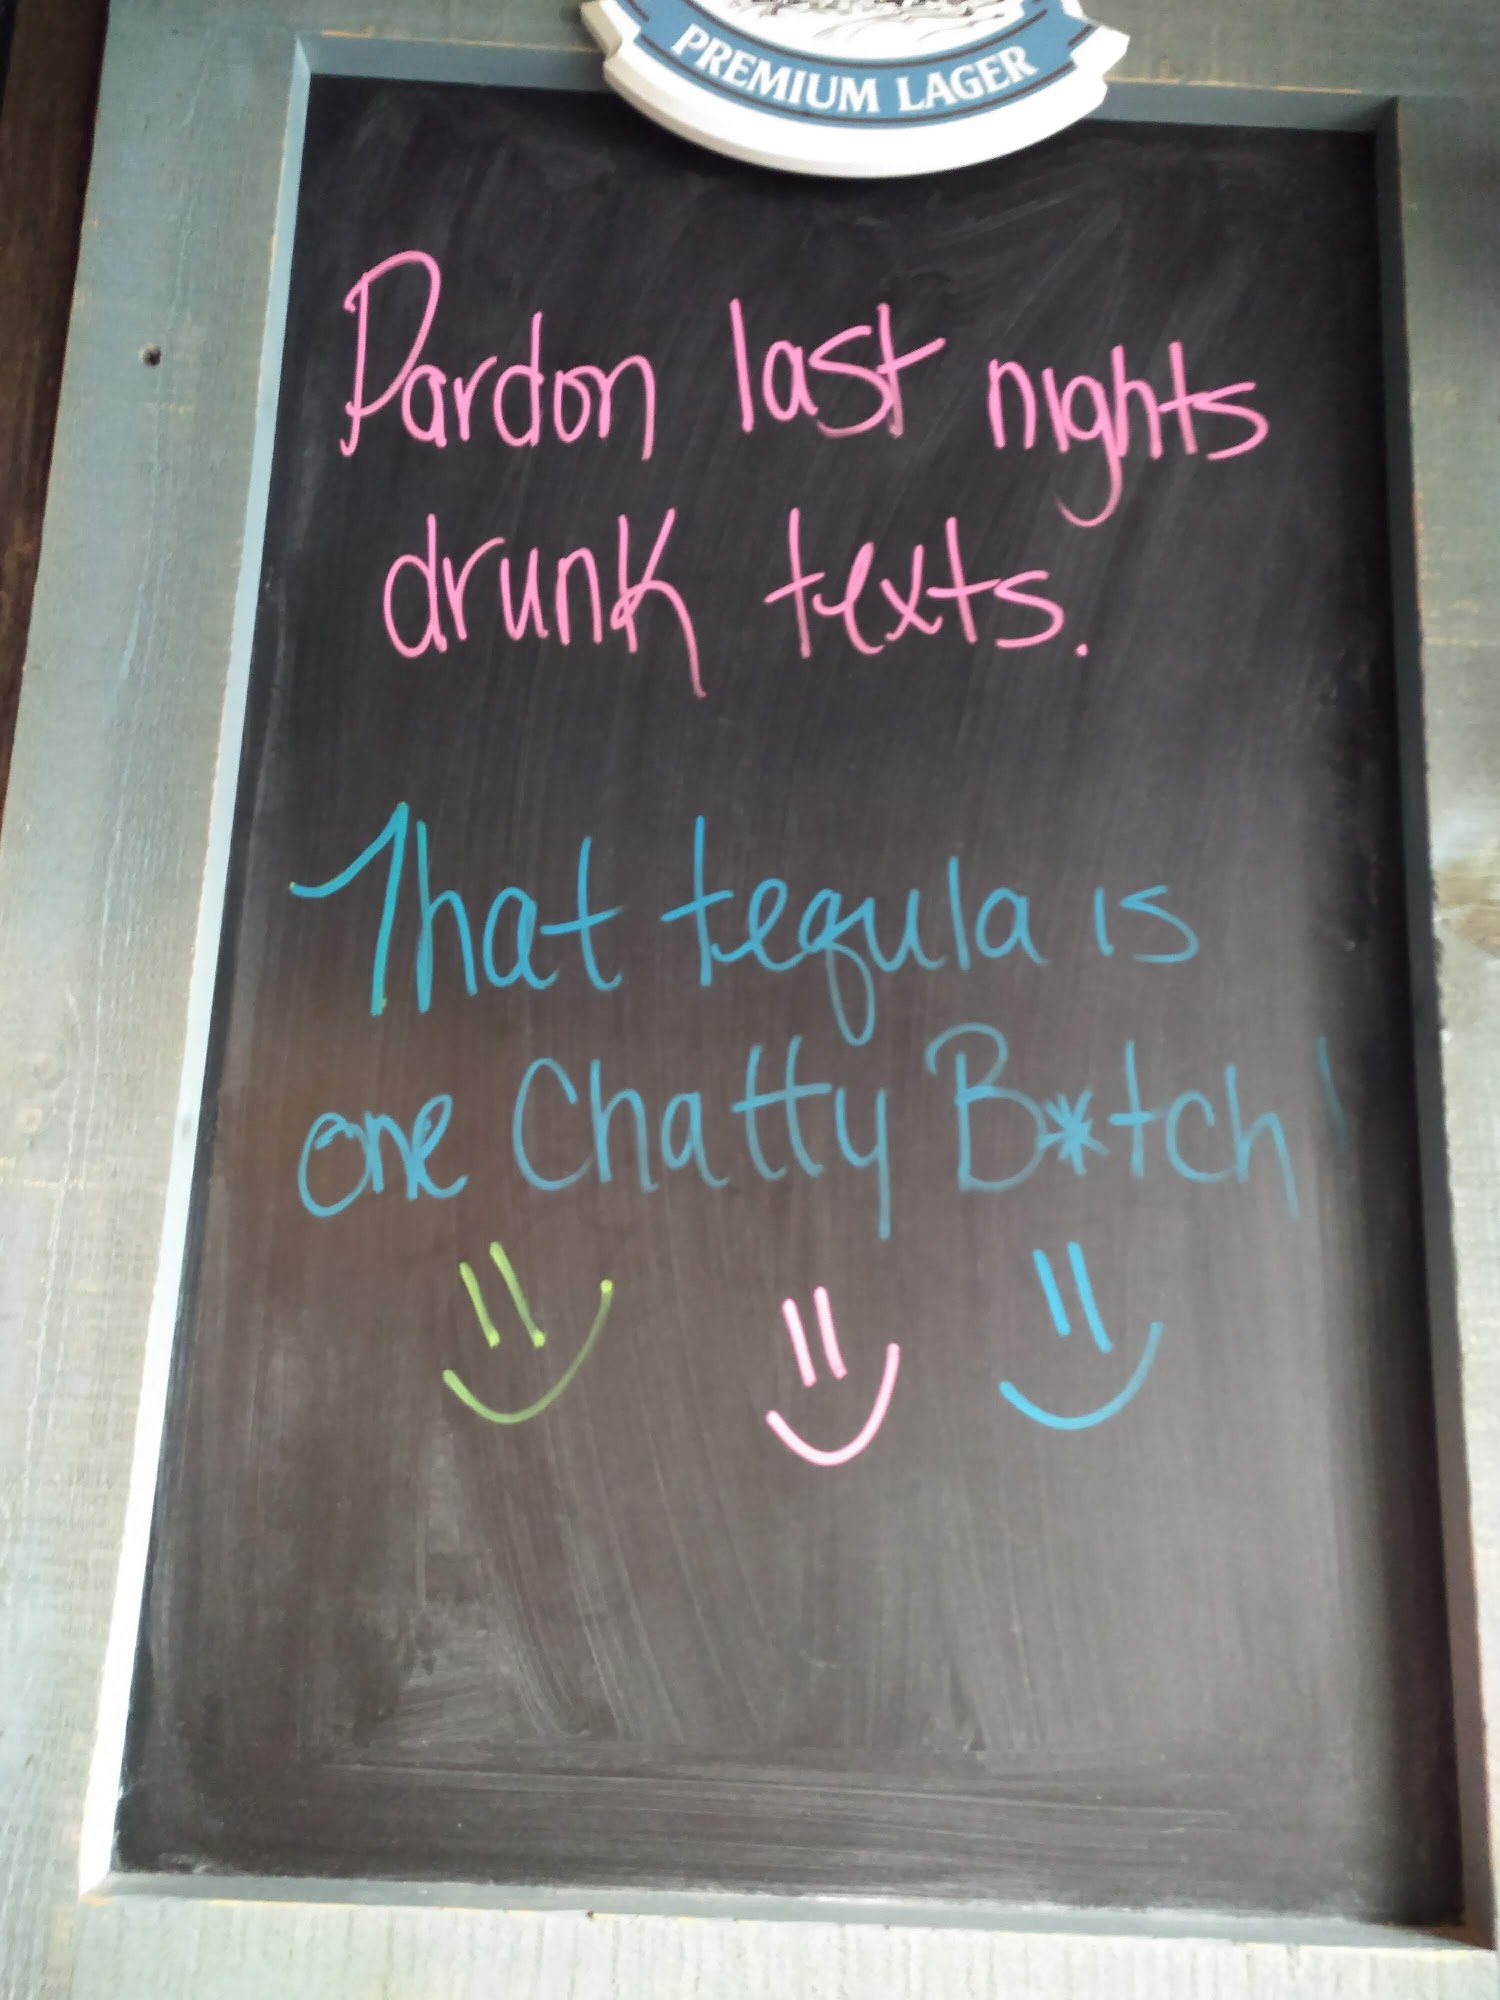 PREMIUM LAGER
Pardon last nights
drunk texts.
That tequla is
one Chatty B*tch!